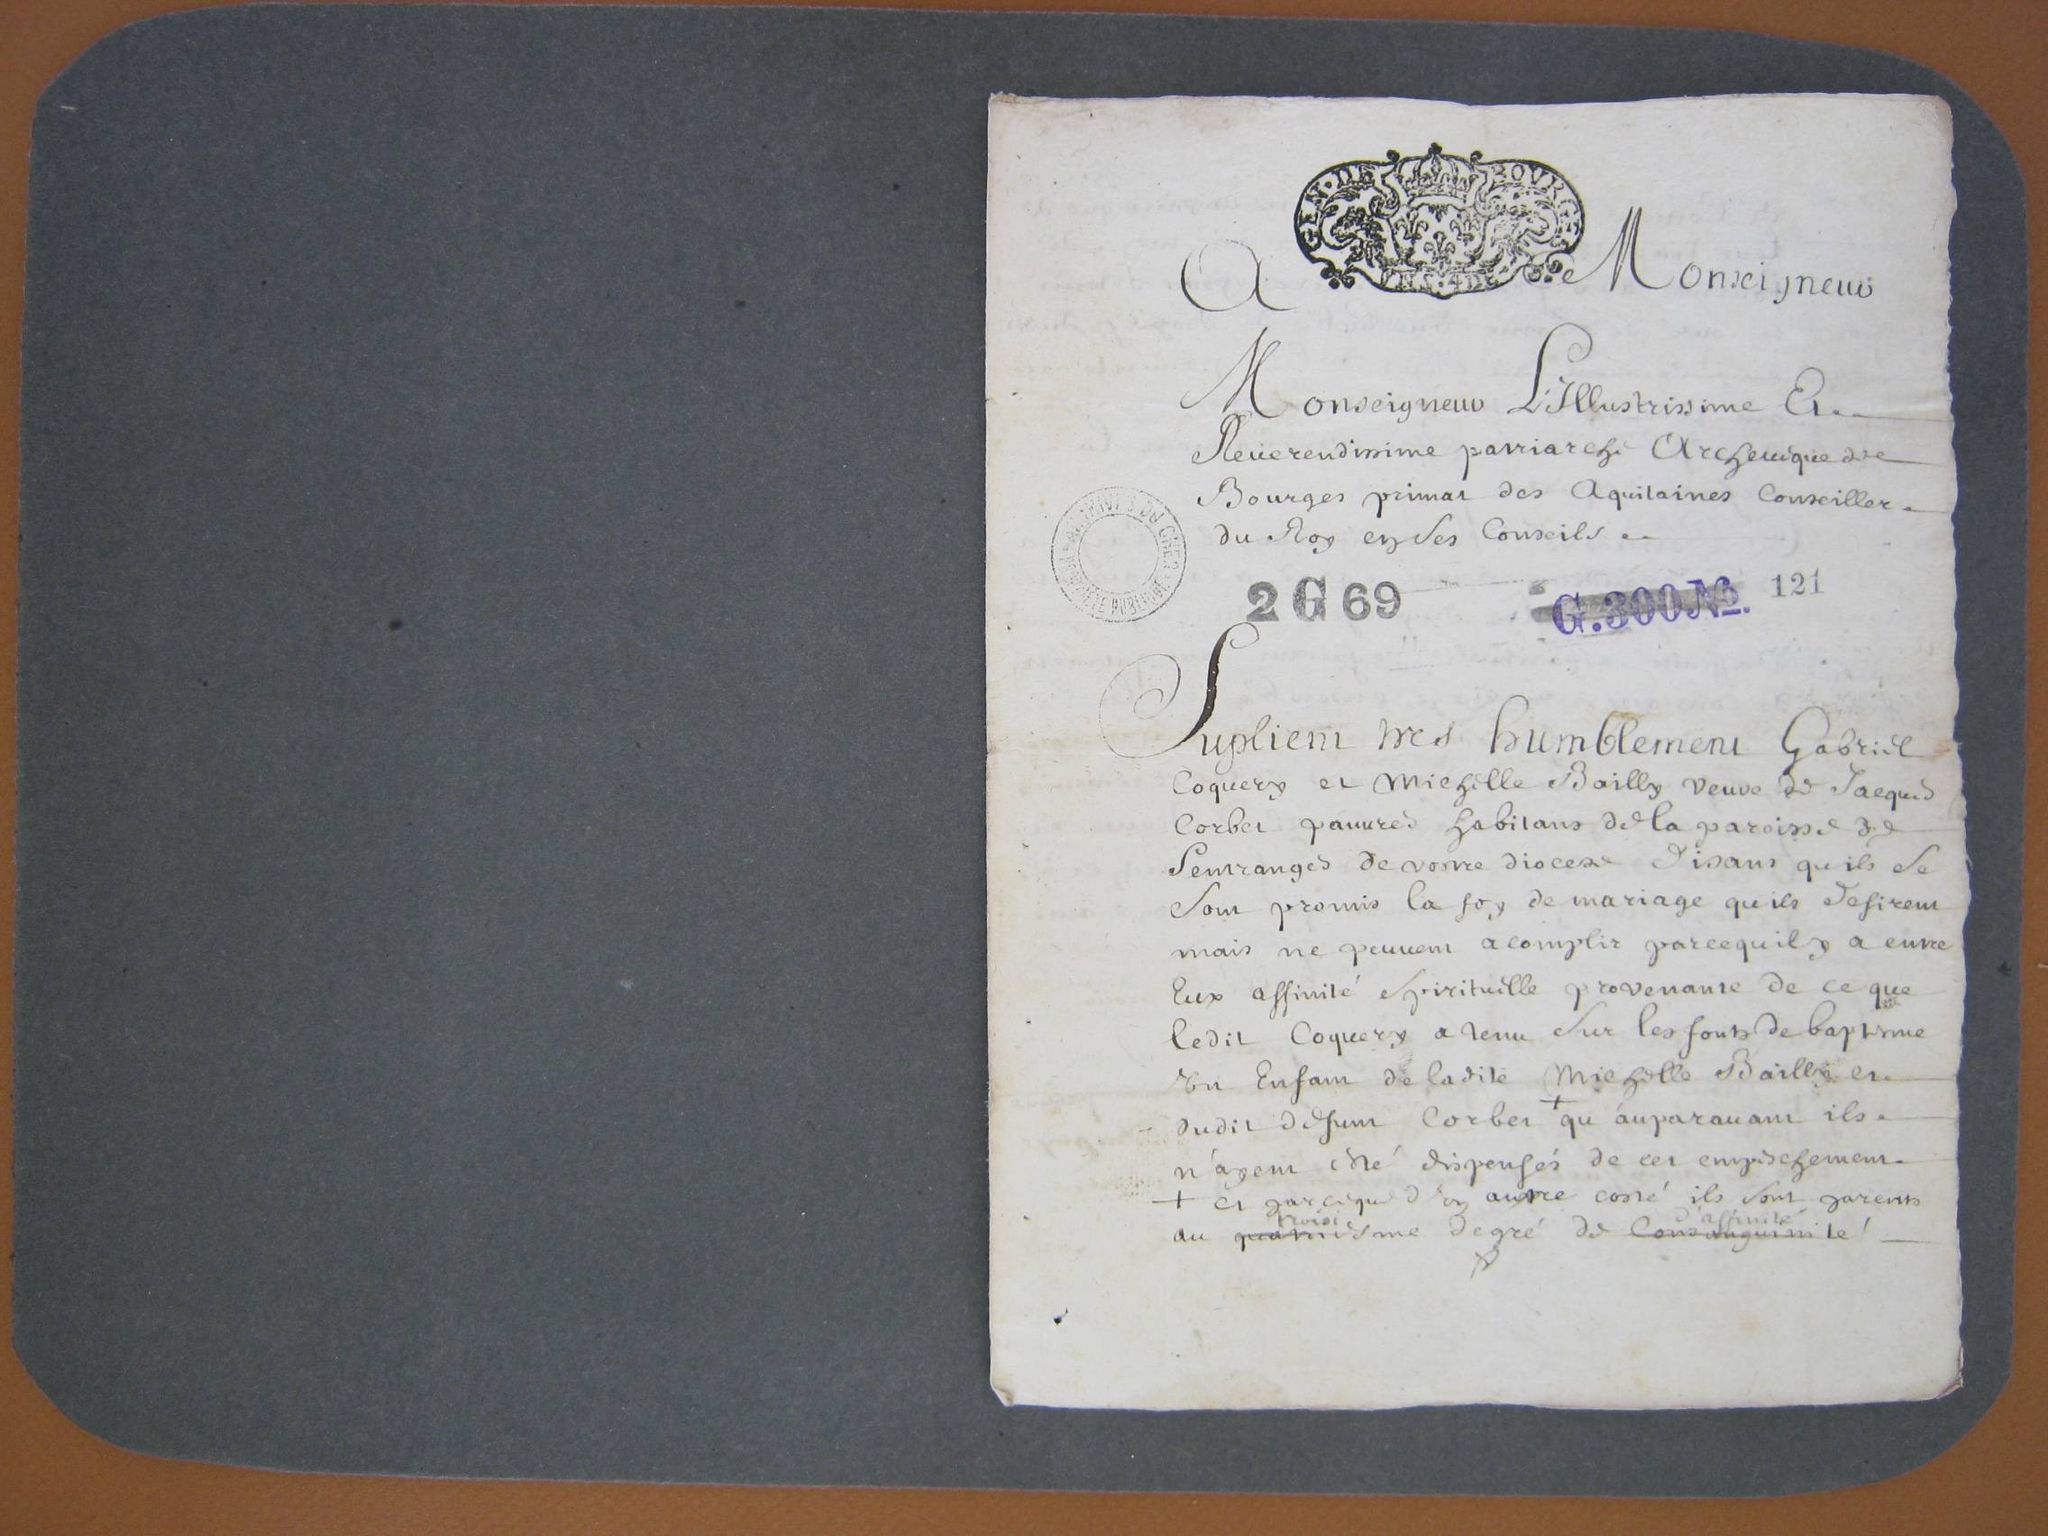 GEN. DE BOURGES
A Monseigneur
Monseigneur L'Illustrissime Et
Reuerendissime patriarche Archeuêque de
Bourges primat des Aquitaines Conseiller
du Roy en Ses Conseils
ARCHIVES DU CHER
2 G 69 G.300 No. 121
Suplient tres humblement Gabriel
Coquery et Michelle Bailly veuve de Jacques
Corbet pauures habitans de la paroisse de
Sentranges de vostre diocese Disans qu'ils Se
Sont promis la foy de mariage qu'ils desirent
mais ne peuuent acomplir parcequ'il y a entre
Eux affinité Spirituelle provenante de ce que
ledit Coquery a tenu Sur les fonts de baptesme
Un Enfant de ladite Michelle Bailly et
dudit defunt Corbet + qu'auparauant ils
n'ayent esté dispensés de cet empeschement
+ et parceque d'un autre costé ils sont parents
troisi d'affinité
au quatriesme degré de Consanguinité